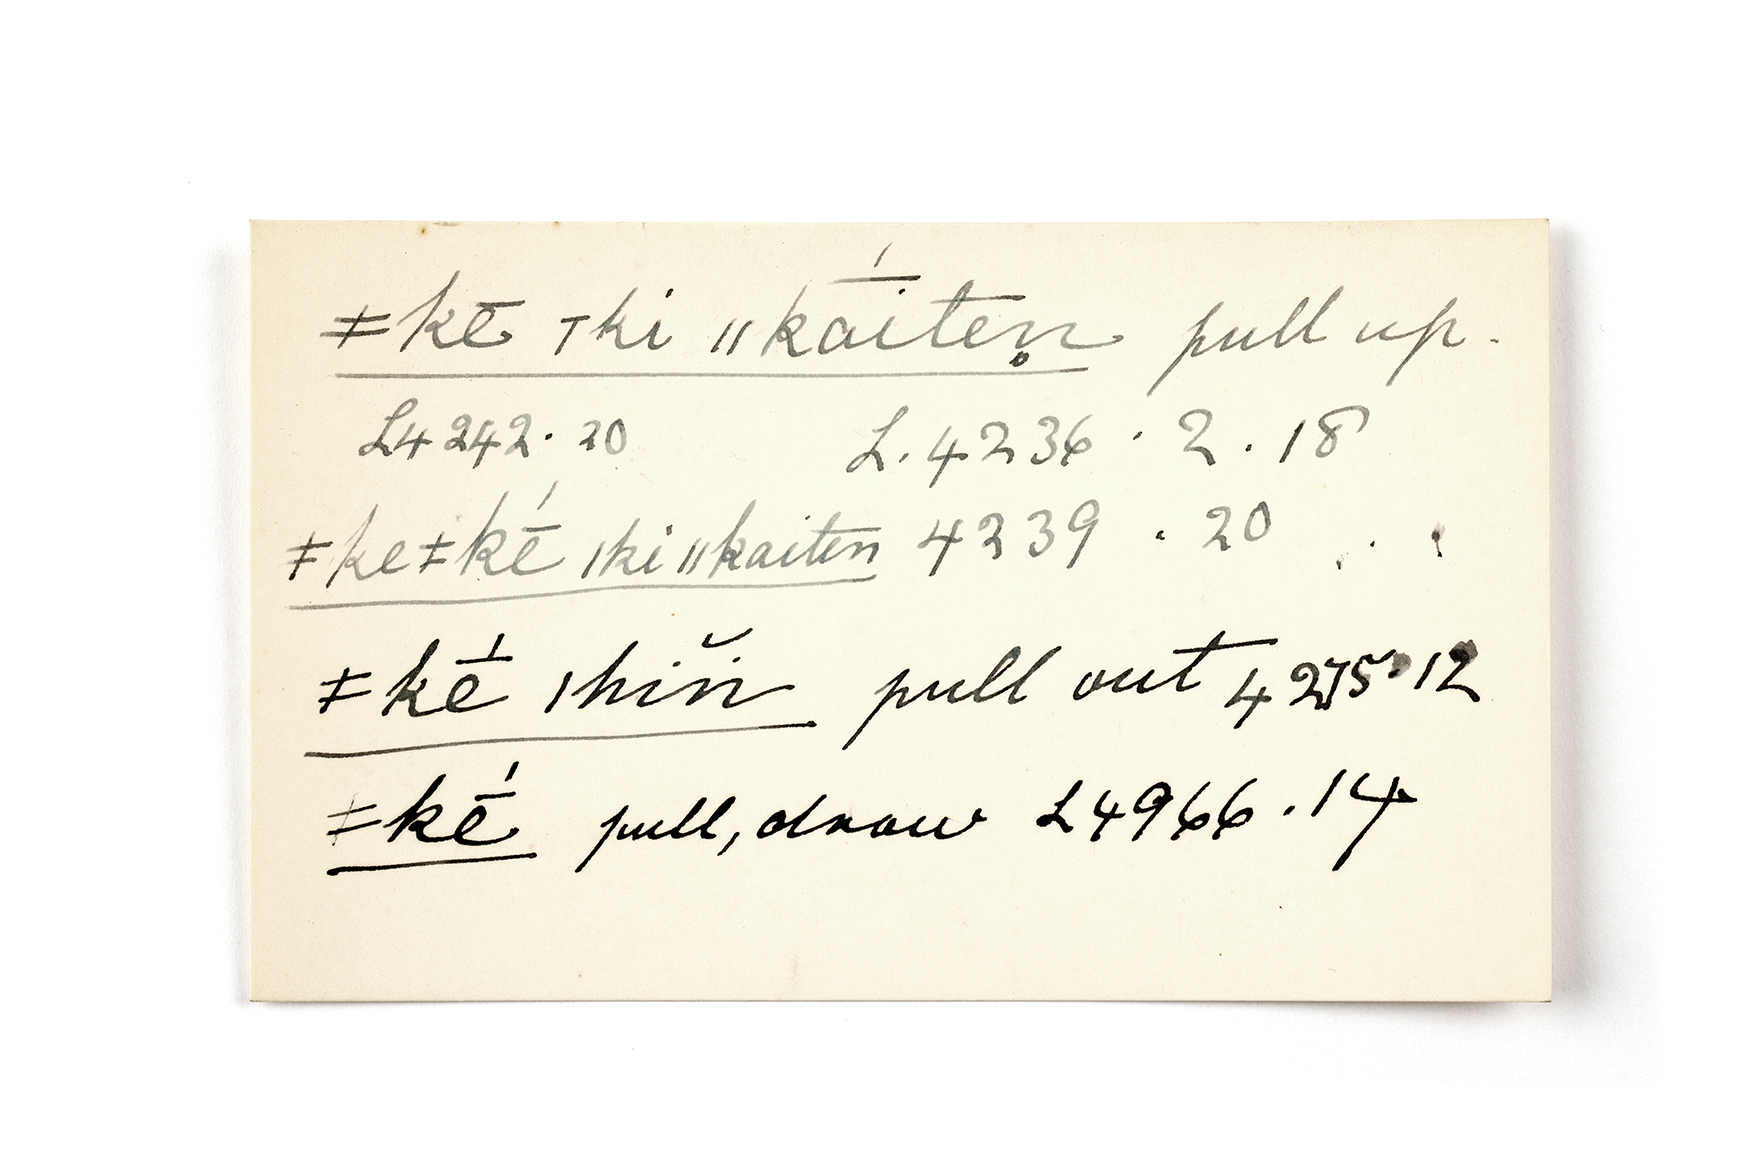 ǂkē ⊤ki ǁkā́iten̥ pull up.
L4242.20 L.4236.2.18
ǂkeǂkḗ ǀkiǁkaiten 4239.20
ǂkḗ ǀhiň pull out 4275.12
ǂkḗ pull, draw L4966.14